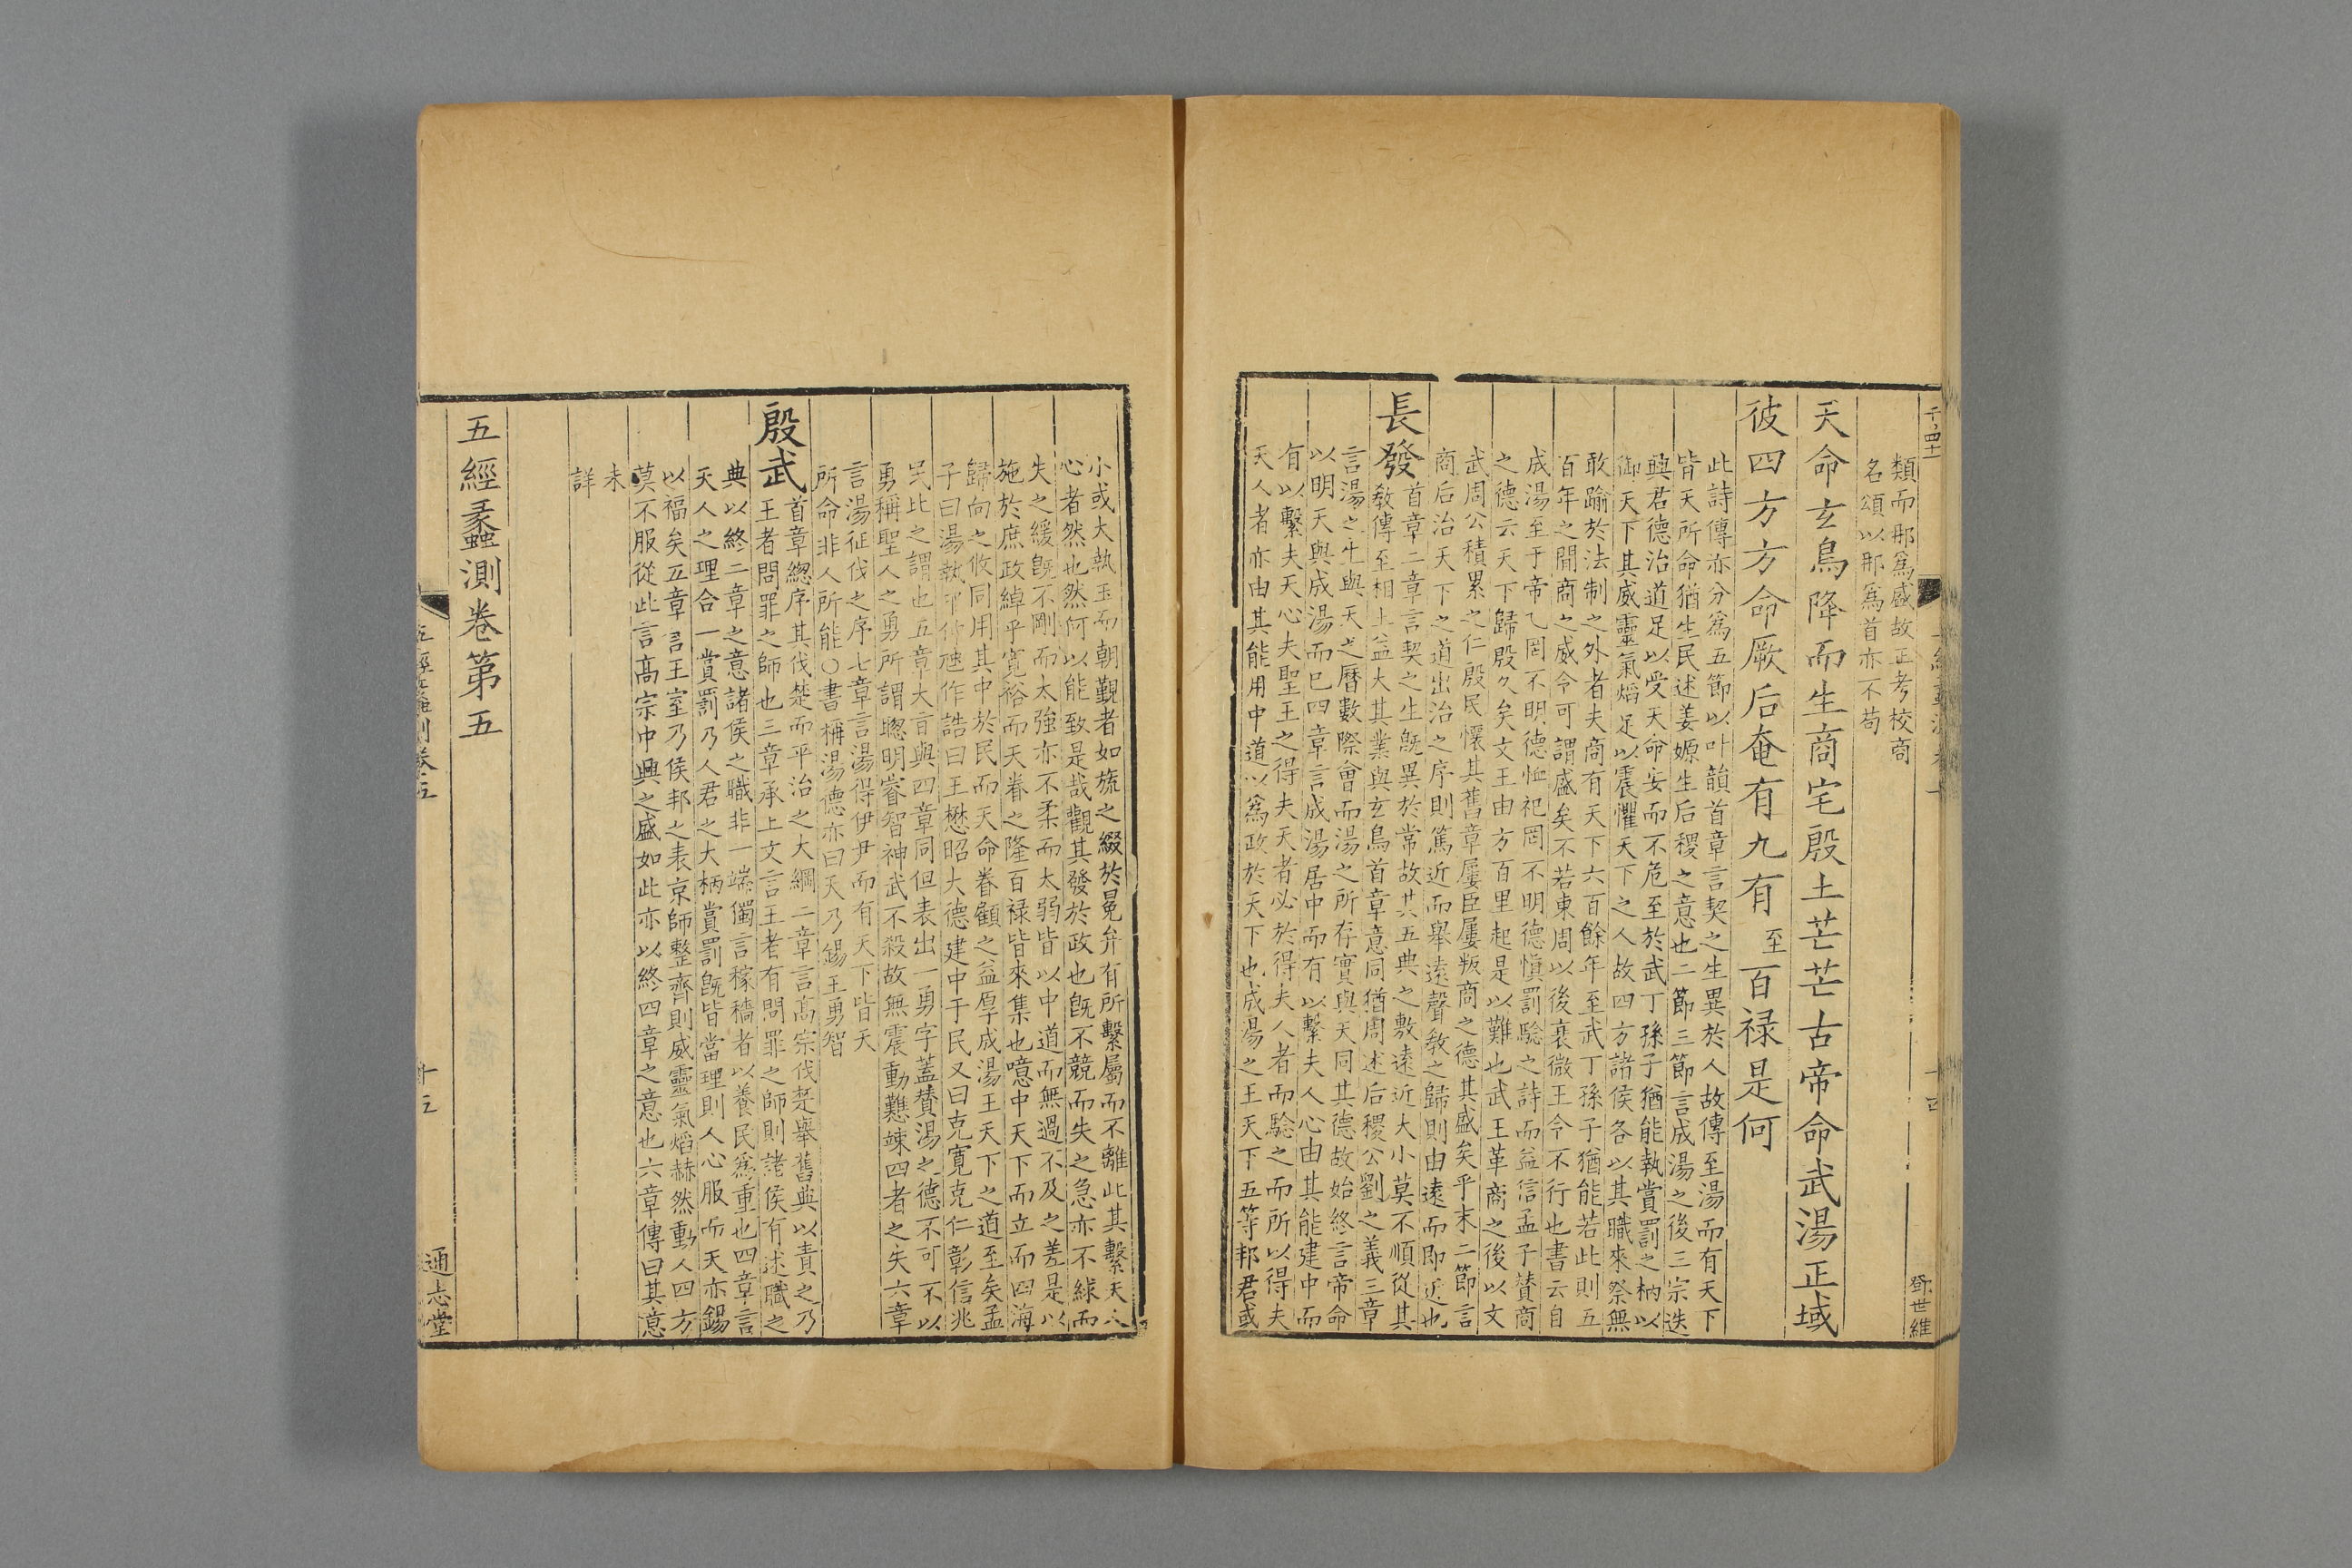 類而那爲盛故正考校商
名頌以那爲首亦不苟
天命玄鳥降而生商宅殷土芒芒古帝命武湯正域
彼四方方命厥后奄有九有至百禄是何
此詩傳亦分爲五節以叶韻首章言契之生異於人故傳至湯而有天下
皆天所命猶生民述姜嫄生后稷之意也二節三節言成湯之後三宗迭
興君德治道足以受天命安而不危至於武丁孫子猶能執賞罰之柄以
御天下其威靈氣熖足以震懼天下之人故四方諸侯各以其職來祭無
敢踰於法制之外者夫商有天下六百餘年至武丁孫子猶能若此則五
百年之間商之威令可謂盛矣不若東周以後衰微王令不行也書云自
成湯至于帝乙罔不明德恤祀罔不明德慎罰驗之詩而益信孟子賛商
之德云天下歸殷久矣文王由方百里起是以難也武王革商之後以文
武周公積累之仁殷民懷其舊章屢臣屢叛商之德其盛矣乎末二節言
商后治天下之道出治之序則篤近而舉遠聲敎之歸則由遠而即近也
長發
首章二章言契之生旣異於常故其五典之敷遠近大小莫不順從其
敎傳至相土益大其業與玄鳥首章意同猶周述后稷公劉之義三章
言湯之生與天之曆數際會而湯之所存實與天同其德故始終言帝命
以明天與成湯而已四章言成湯居中而有以繫夫人心由其能建中而
有以繫夫天心夫聖王之得夫天者必於得夫人者而驗之而所以得夫
天人者亦由其能用中道以爲政於天下也成湯之王天下五等邦君或
鄧世維
小或大執玉而朝覲者如旒之綴於冕弁有所繫屬而不離此其繫天人
心者然也然何以能致是哉觀其發於政也旣不競而失之急亦不絿而
失之緩旣不剛而太強亦不柔而太弱皆以中道而無過不及之差是以
施於庶政綽乎寬裕而天眷之隆百禄皆來集也噫中天下而立而四海
歸向之攸同用其中於民而天命眷顧之益厚成湯王天下之道至矣孟
子曰湯執中仲虺作誥曰王懋昭大德建中于民又曰克寛克仁彰信兆
民此之謂也五章大旨與四章同但表出一勇字蓋賛湯之德不可不以
勇稱聖人之勇所謂聰明睿智神武不殺故無震動難竦四者之失六章
言湯征伐之序七章言湯得伊尹而有天下皆天
所命非人所能○書稱湯德亦曰天乃錫王勇智
殷武
首章緫序其伐楚而平治之大綱二章言髙宗伐楚舉舊典以責之乃
王者問罪之師也三章承上文言王者有問罪之師則諸侯有述職之
典以終二章之意諸侯之職非一端獨言稼穡者以養民爲重也四章言
天人之理合一賞罰乃人君之大柄賞罰旣皆當理則人心服而天亦錫
以福矣五章言王室乃侯邦之表京師整齊則威靈氣熖赫然動人四方
莫不服從此言髙宗中興之盛如此亦以終四章之意也六章傳曰其意
未
詳
五經蠡測卷第五
五經蠡測卷五
十五
通志堂